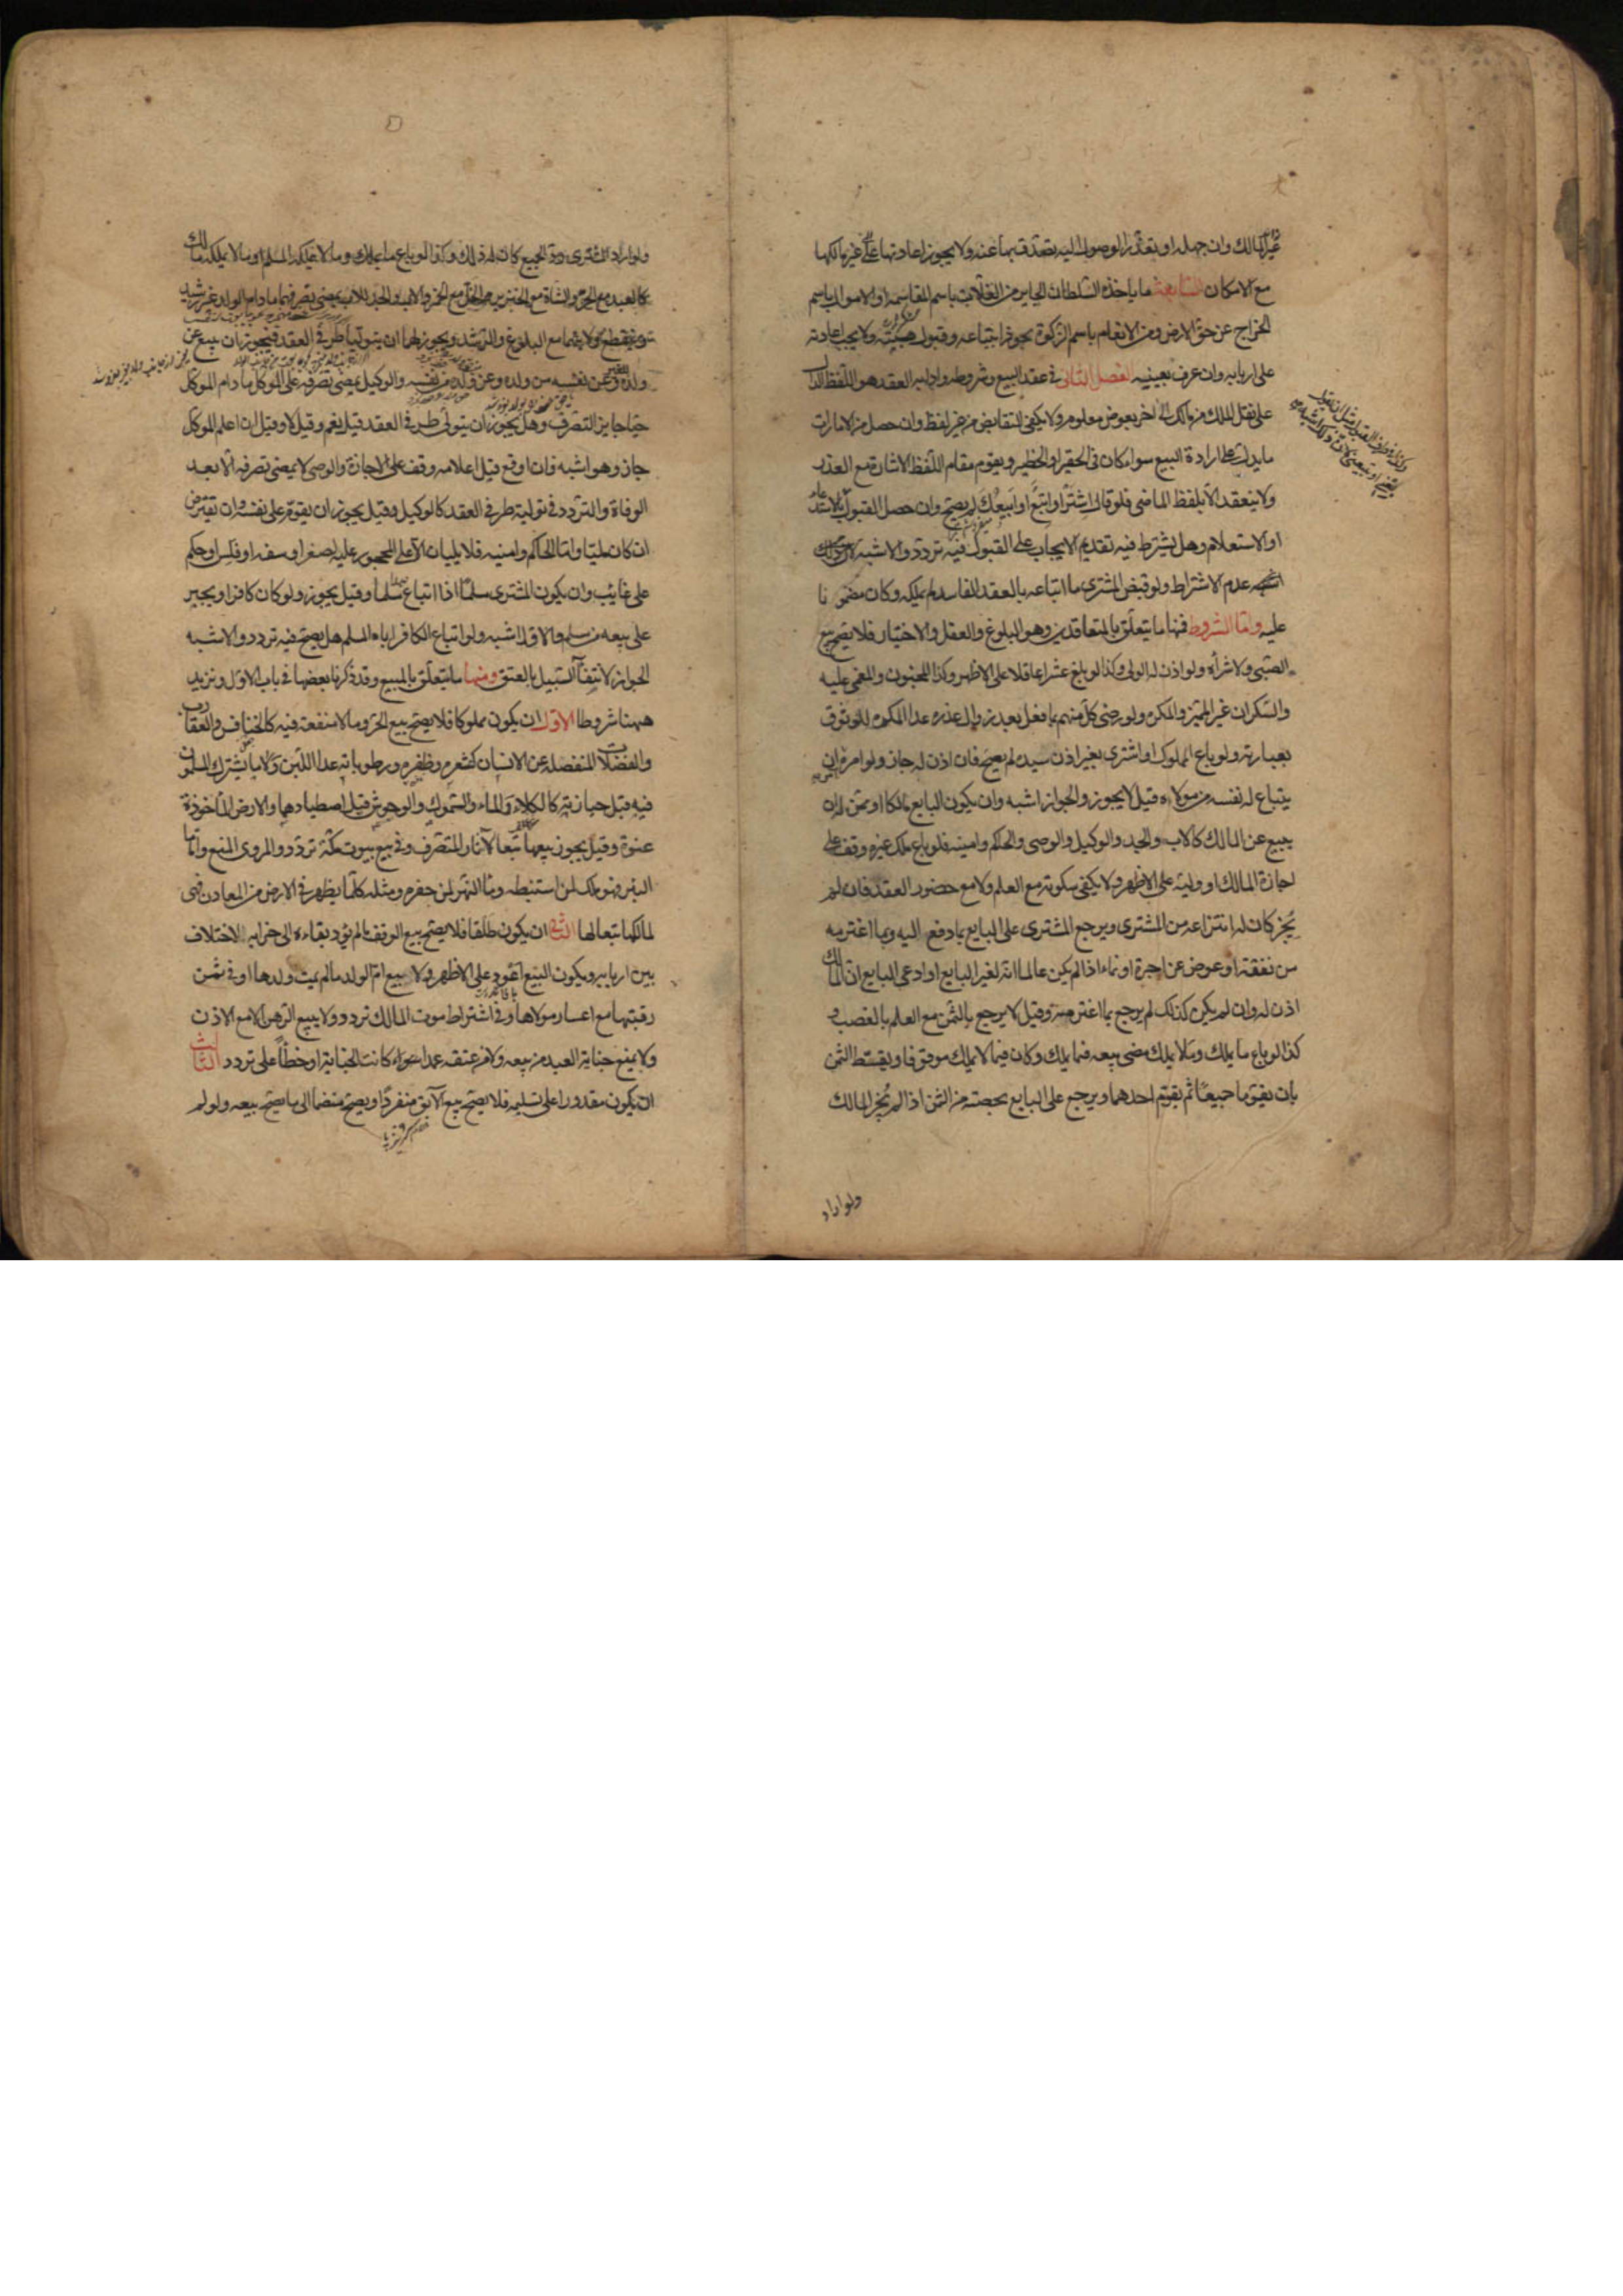 غير المالك وان جهله او تعذر الوصول اليه تصدق بها عنه ولا يجوز اعادتها على غير مالكها
مع الامكان السابعة ما ياخذه السلطان الجاير من الغلات باسم المقاسمة او الاموال باسم
الخراج عن حق الارض ومن الانعام باسم الزكوة يجوز ابتياعه وقبول هبته ولا يجب اعادته
على اربابه وان عرف بعينه الفصل الثانى فى عقد البيع وشروطه وادابه العقد هو اللفظ الدال
على نقل الملك من مالك الى اخر بعوض معلوم ولا يكفى التقابض من غير لفظ وان حصل من الامارات
ما يدل على ارادة البيع سواء كان فى الحقير او الخطير ويقوم مقام اللفظ الاشارة مع العذر
ولا ينعقد الا بلفظ الماضى فلو قال اشتر او ابتع او ابيعك لم يصح وان حصل القبول
او الاستعلام وهل يشترط فيه تقديم الايجاب على القبول فيه تردد والاشبه
عدم الاشتراط ولو قبض المشترى ما ابتاعه بالعقد الفاسد لم يملكه وكان مضمونا
عليه واما الشروط فمنها ما يتعلق بالمتعاقدين وهو البلوغ والعقل والاختيار فلا يصح بيع
الصبى ولا شرائه ولو اذن له الولى وكذا لو بلغ عشرا عاقلا على الاظهر وكذا المجنون والمغمى عليه
والسكران غير المميز والمكره ولو رضى كل منهم بما فعل بعد زوال عذره عدا المكره للوثوق
بعبارته ولو باع المملوك او اشترى بغير اذن سيده لم يصح فان اذن له جاز ولو امره ان
يبتاع له نفسه من مولاه قيل لا يجوز والجواز اشبه وان يكون البايع مالكا او ممن له ان
يبيع عن المالك كالاب والجد والوكيل والوصى والحاكم وامينه فلو باع ملك غيره وقف على
اجازة المالك او وليه على الاظهر ولا يكفى سكوته مع العلم ولا مع حضور العقد فان لم
يجز كان له انتزاعه من المشترى ويرجع المشترى على البايع بما دفع اليه وبما اغترمه
من نفقة او عوض عن اجرة او نماء اذا لم يكن عالما انه لغير البايع او ادعى البايع ان المالك
اذن له وان لم يكن كذلك لم يرجع بما اغترمه وقيل لا يرجع بالثمن مع العلم بالغصب و
كذا لو باع ما يملك وما لا يملك مضى بيعه فيما يملك وكان فيما لا يملك موقوفا ويقسط الثمن
بان يقوما جميعا ثم يقوم احدهما ويرجع على البايع بحصته من الثمن اذا لم يجز المالك
ولو اراد
ولو اراد المشترى رد الجميع كان له ذلك وكذا لو باع ما يملك وما لا يملكه المسلم او ما لا يملكه مالك
كالعبد مع الحر والشاة مع الخنزير والخل مع الخمر والاب والجد للاب يمضى تصرفهما ما دام الولد غير رشيد
وينقطع ولايتهما مع البلوغ والرشد ويجوز لهما ان يتوليا طرفى العقد فيجوز ان يبيع عن
ولده وعن نفسه من ولده وعن ولده من نفسه والوكيل يمضى تصرفه على الموكل ما دام الموكل
حيا جايز التصرف وهل يجوز ان يتولى طرفى العقد قيل نعم وقيل لا وقيل ان اعلم الموكل
جاز وهو اشبه فان اوقع قبل اعلامه وقف على الاجازة والوصى لا يمضى تصرفه الا بعد
الوفاة والتردد فى توليته طرفى العقد كالوكيل وقيل يجوز ان يقوم على نفسه وان يقترض
ان كان مليا واما الحاكم وامينه فلا يليان الا على المحجور عليه لصغر او سفه او فلس او حكم
على غايب وان يكون المشترى مسلما اذا ابتاع عبدا مسلما وقيل يجوز ولو كان كافرا ويجبر
على بيعه من مسلم والاول اشبه ولو ابتاع الكافر اباه المسلم هل يصح فيه تردد والاشبه
الجواز لانتفاء السبيل بالعتق ومنها ما يتعلق بالمبيع وقد ذكرنا بعضها فى باب الاول ونزيد
ههنا شروطا الاول ان يكون مملوكا فلا يصح بيع الحر وما لا منفعة فيه كالخنافس والعقارب
والفضلات المنفصلة عن الانسان كشعره وظفره ورطوباته عدا اللبن ولا ما يشترك المسلمون
فيه قبل حيازته كالكلاء والماء والسموك والوحوش قبل اصطيادها والارض الماخوذة
عنوة وقيل يجوز بيعها تبعا لآثار المتصرف وفى بيع بيوت مكة تردد والمروى المنع واما
البئر فهو ملك لمن استنبطه وماء النهر لمن حفره ومثله كلما يظهر فى الارض من المعادن فهى
لمالكها تبعا لها الثانى ان يكون طلقا فلا يصح بيع الوقف ما لم يؤد بقاءه الى خرابه لاختلاف
بين اربابه ويكون البيع اعود على الاظهر ولا بيع ام الولد ما لم يمت ولدها او فى ثمن
رقبتها مع اعسار مولاها وفى اشتراط موت المالك تردد ولا يبيع الرهن الا مع الاذن
ولا يمنع جناية العبد من بيعه ولا من عتقه عمدا سواء كانت الجناية او خطأ على تردد الثالث
ان يكون مقدورا على تسليمه فلا يصح بيع الآبق منفردا ويصح منضما الى ما يصح بيعه ولو لم